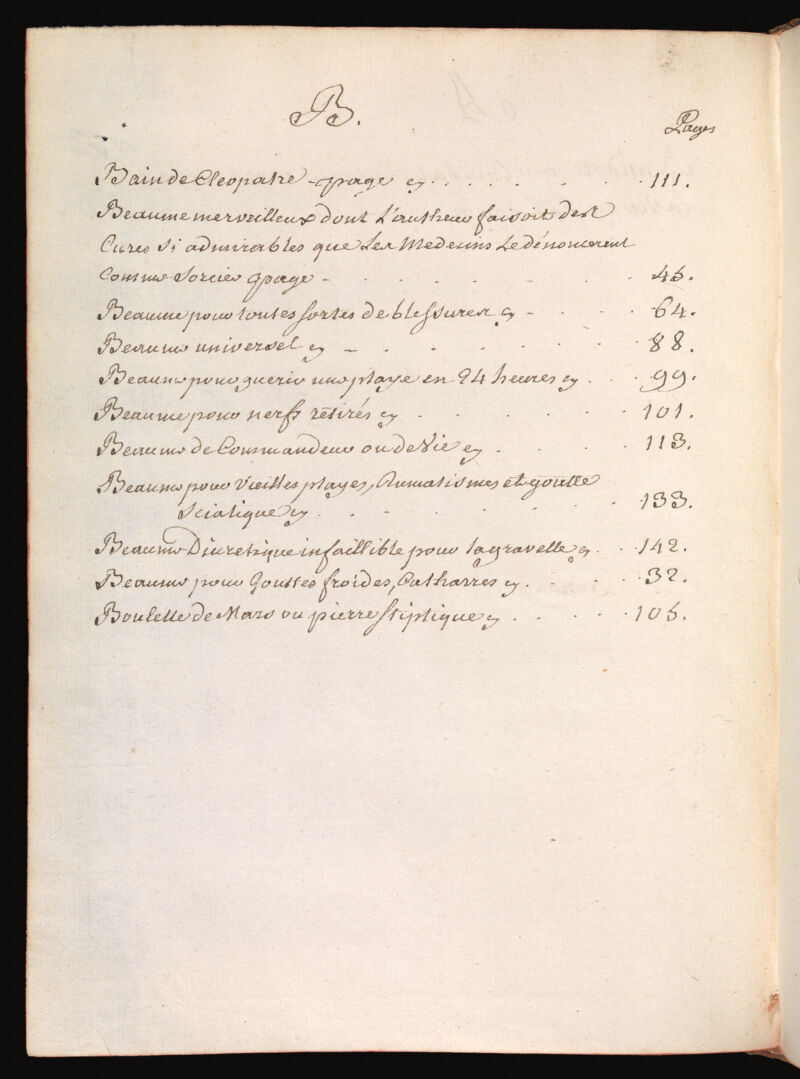 B.
Pages
Bain de Cleopatre - page cy . . . . . . 111.
Beaume merveilleux dont l'autheur faisoit des
Cures si admirables que les Medecins le dénoncerent
Comme Sorcier page - . . . . . . 45.
Beaume pour toutes sortes de blessures cy - . . . 64.
Beaume universel cy - . . . . . . 88.
Beaume pour guerir une playe en 24 heures cy . . 99.
Beaume pour nerfs retirés cy . . . . . 101.
Beaume de Commandeur ou de Vie cy . . . . 113.
Beaume pour Vieilles playes, Rumatismes et goutte
Sciatique cy . . . . . . . 133.
Beaume Diuretique infaillible pour la gravelle cy . . 142.
Beaume pour Gouttes froides, Catharres cy . . . . 32.
Boulette de Mars ou pierre stiptique cy . . . . 105.